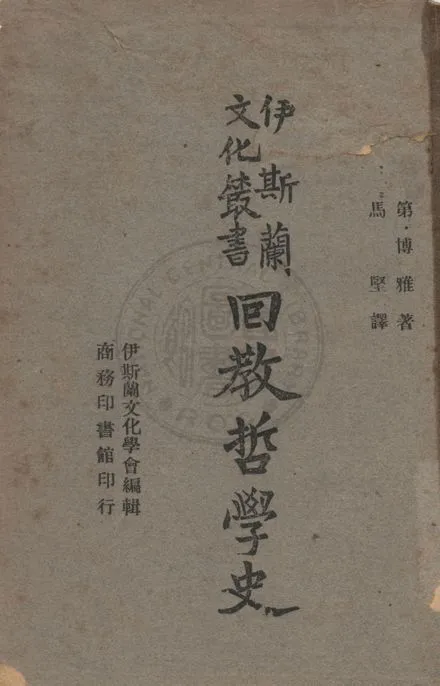 第·博雅著
馬堅譯
伊斯蘭
文化叢書
回教哲學史
伊斯蘭文化學會編輯
商務印書館印行